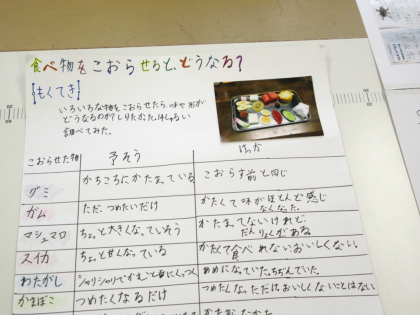 食べ物をこおらせると、どうなる?
【もくてき】
いろいろな物をこおらせたら、味や形が
どうなるのか?しりたかった。
調べてみた。
こおらせた物 予そう けっか
グミ かちこちにかたまっている こおらす前と同じ
ガム ただ、つめたいだけ かたくて味がほとんど感じ
なくなった。
マシュマロ ちょっと大きくなっていそう かたまってないけれど
だんりょくがある
スイカ ちょっと甘くなっている かたくて食べれない。おいしくない。
わたがし シャリシャリで あめになっていた。ちぢんでいた。
かまぼこ つめたくなるだけ つめたくなっただけ。おいしくないことはない